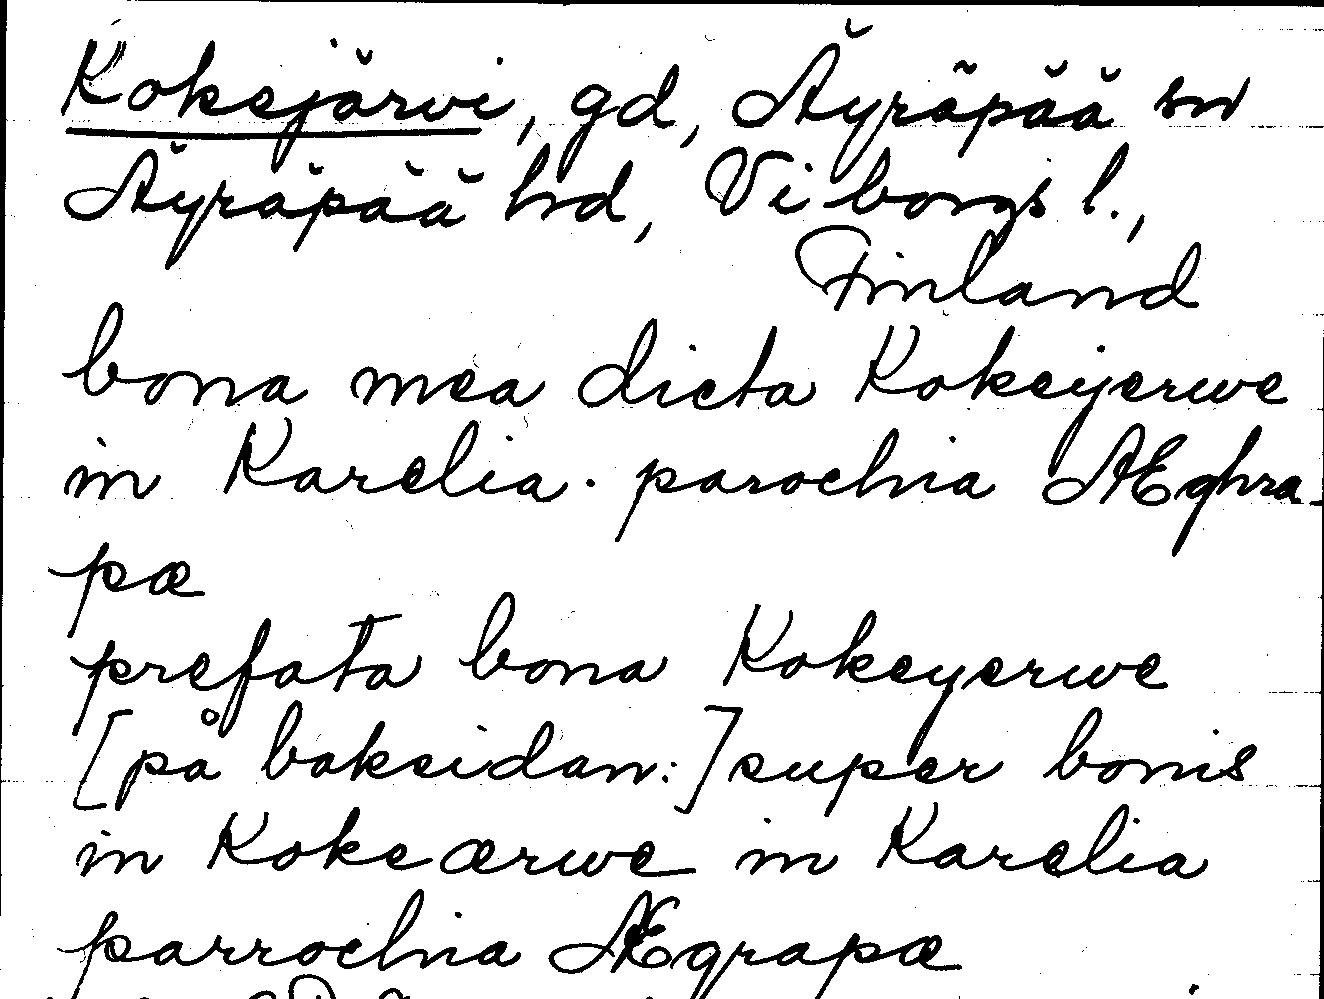 Kokejärvi, gd, Äyräpää sn
Äyräpää hrd, Viborgs l.,
Finland
bona mea dicta Kokeyerwe
in Karelia. parochia Æghra-
pæ
prefata bona Kokeyerwe
[på baksidan:] super bonis
in Kokeærwe in Karelia
parrochia Ægrapæ